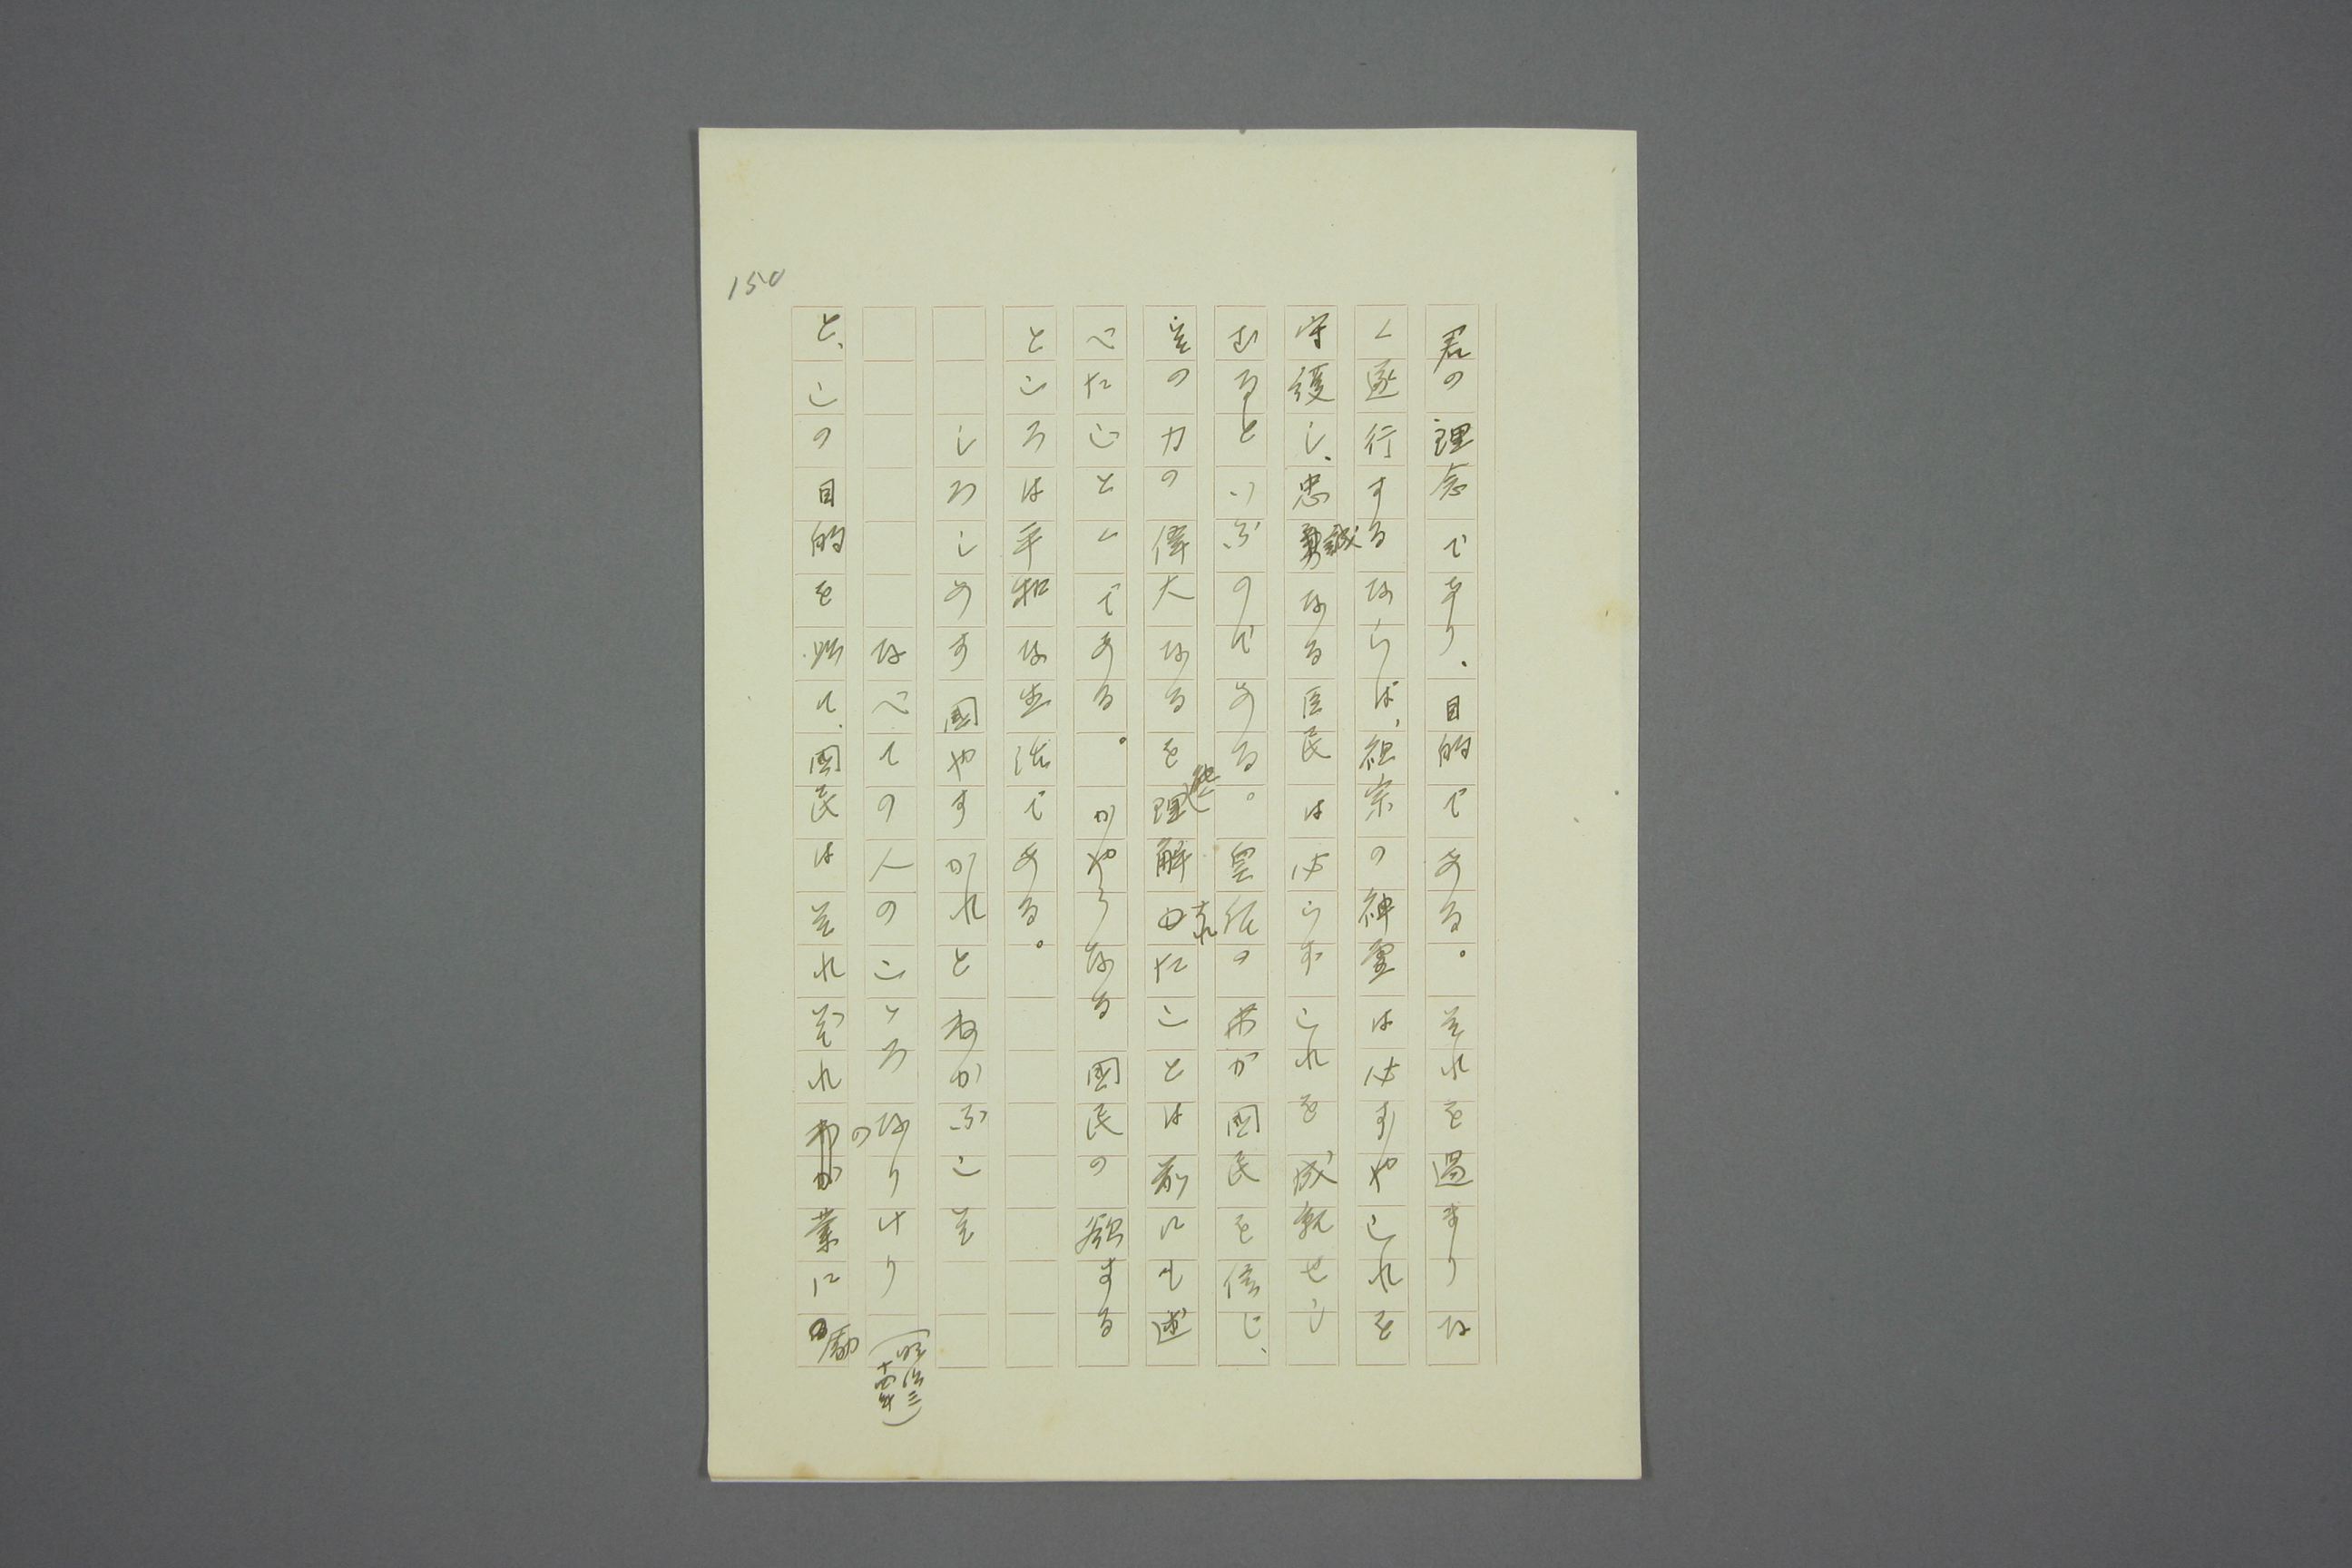 150
君の理念であり、目的である。それを過まりな
く遂行するならば、祖宗の神霊は必ずやこれを
守護し、忠誠なる臣民は必らずこれを成就せし
むるといふのである。皇派の世が国民を信じ、
その力の偉大なるを理解されたことは前にも述
べたことゝである。かやうなる国民の欲する
ところは平和な生活である。
しろしめす国やすかれとねがふこそ
なべての人のこゝろなりけり
(明治三十四年)
と、この目的を以て、国民はそれぞれの業に励